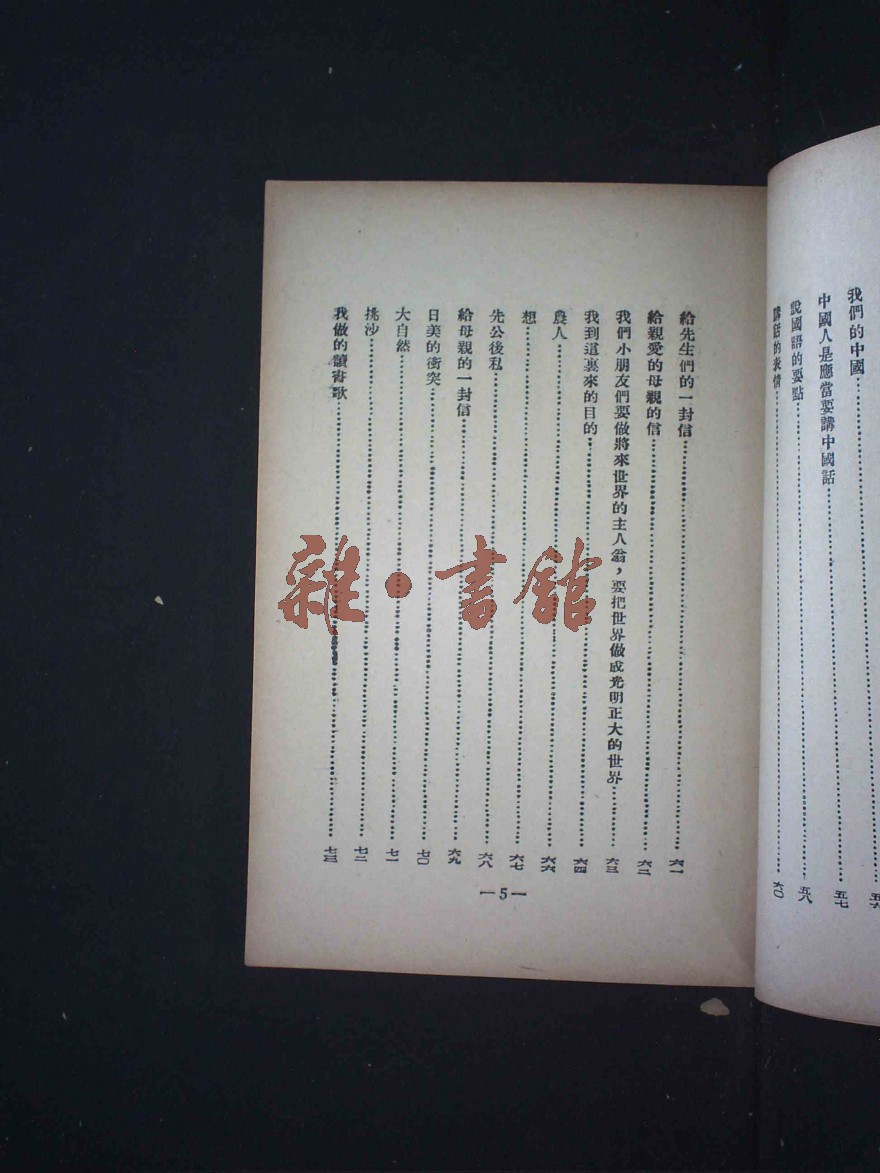 我們的中國……五六
中國人是應當要講中國話……五七
說國語的要點……五八
講話的表情……六〇
給先生們的一封信……六一
給親愛的母親的信……六二
我們小朋友們要做將來世界的主人翁，要把世界做成光明正大的世界……六三
我到這裏來的目的……六四
農人……六六
想……六七
先公後私……六八
給母親的一封信……六九
日美的衝突……七〇
大自然……七一
挑沙……七二
我做的讀書歌……七三
—5—
雜·書館